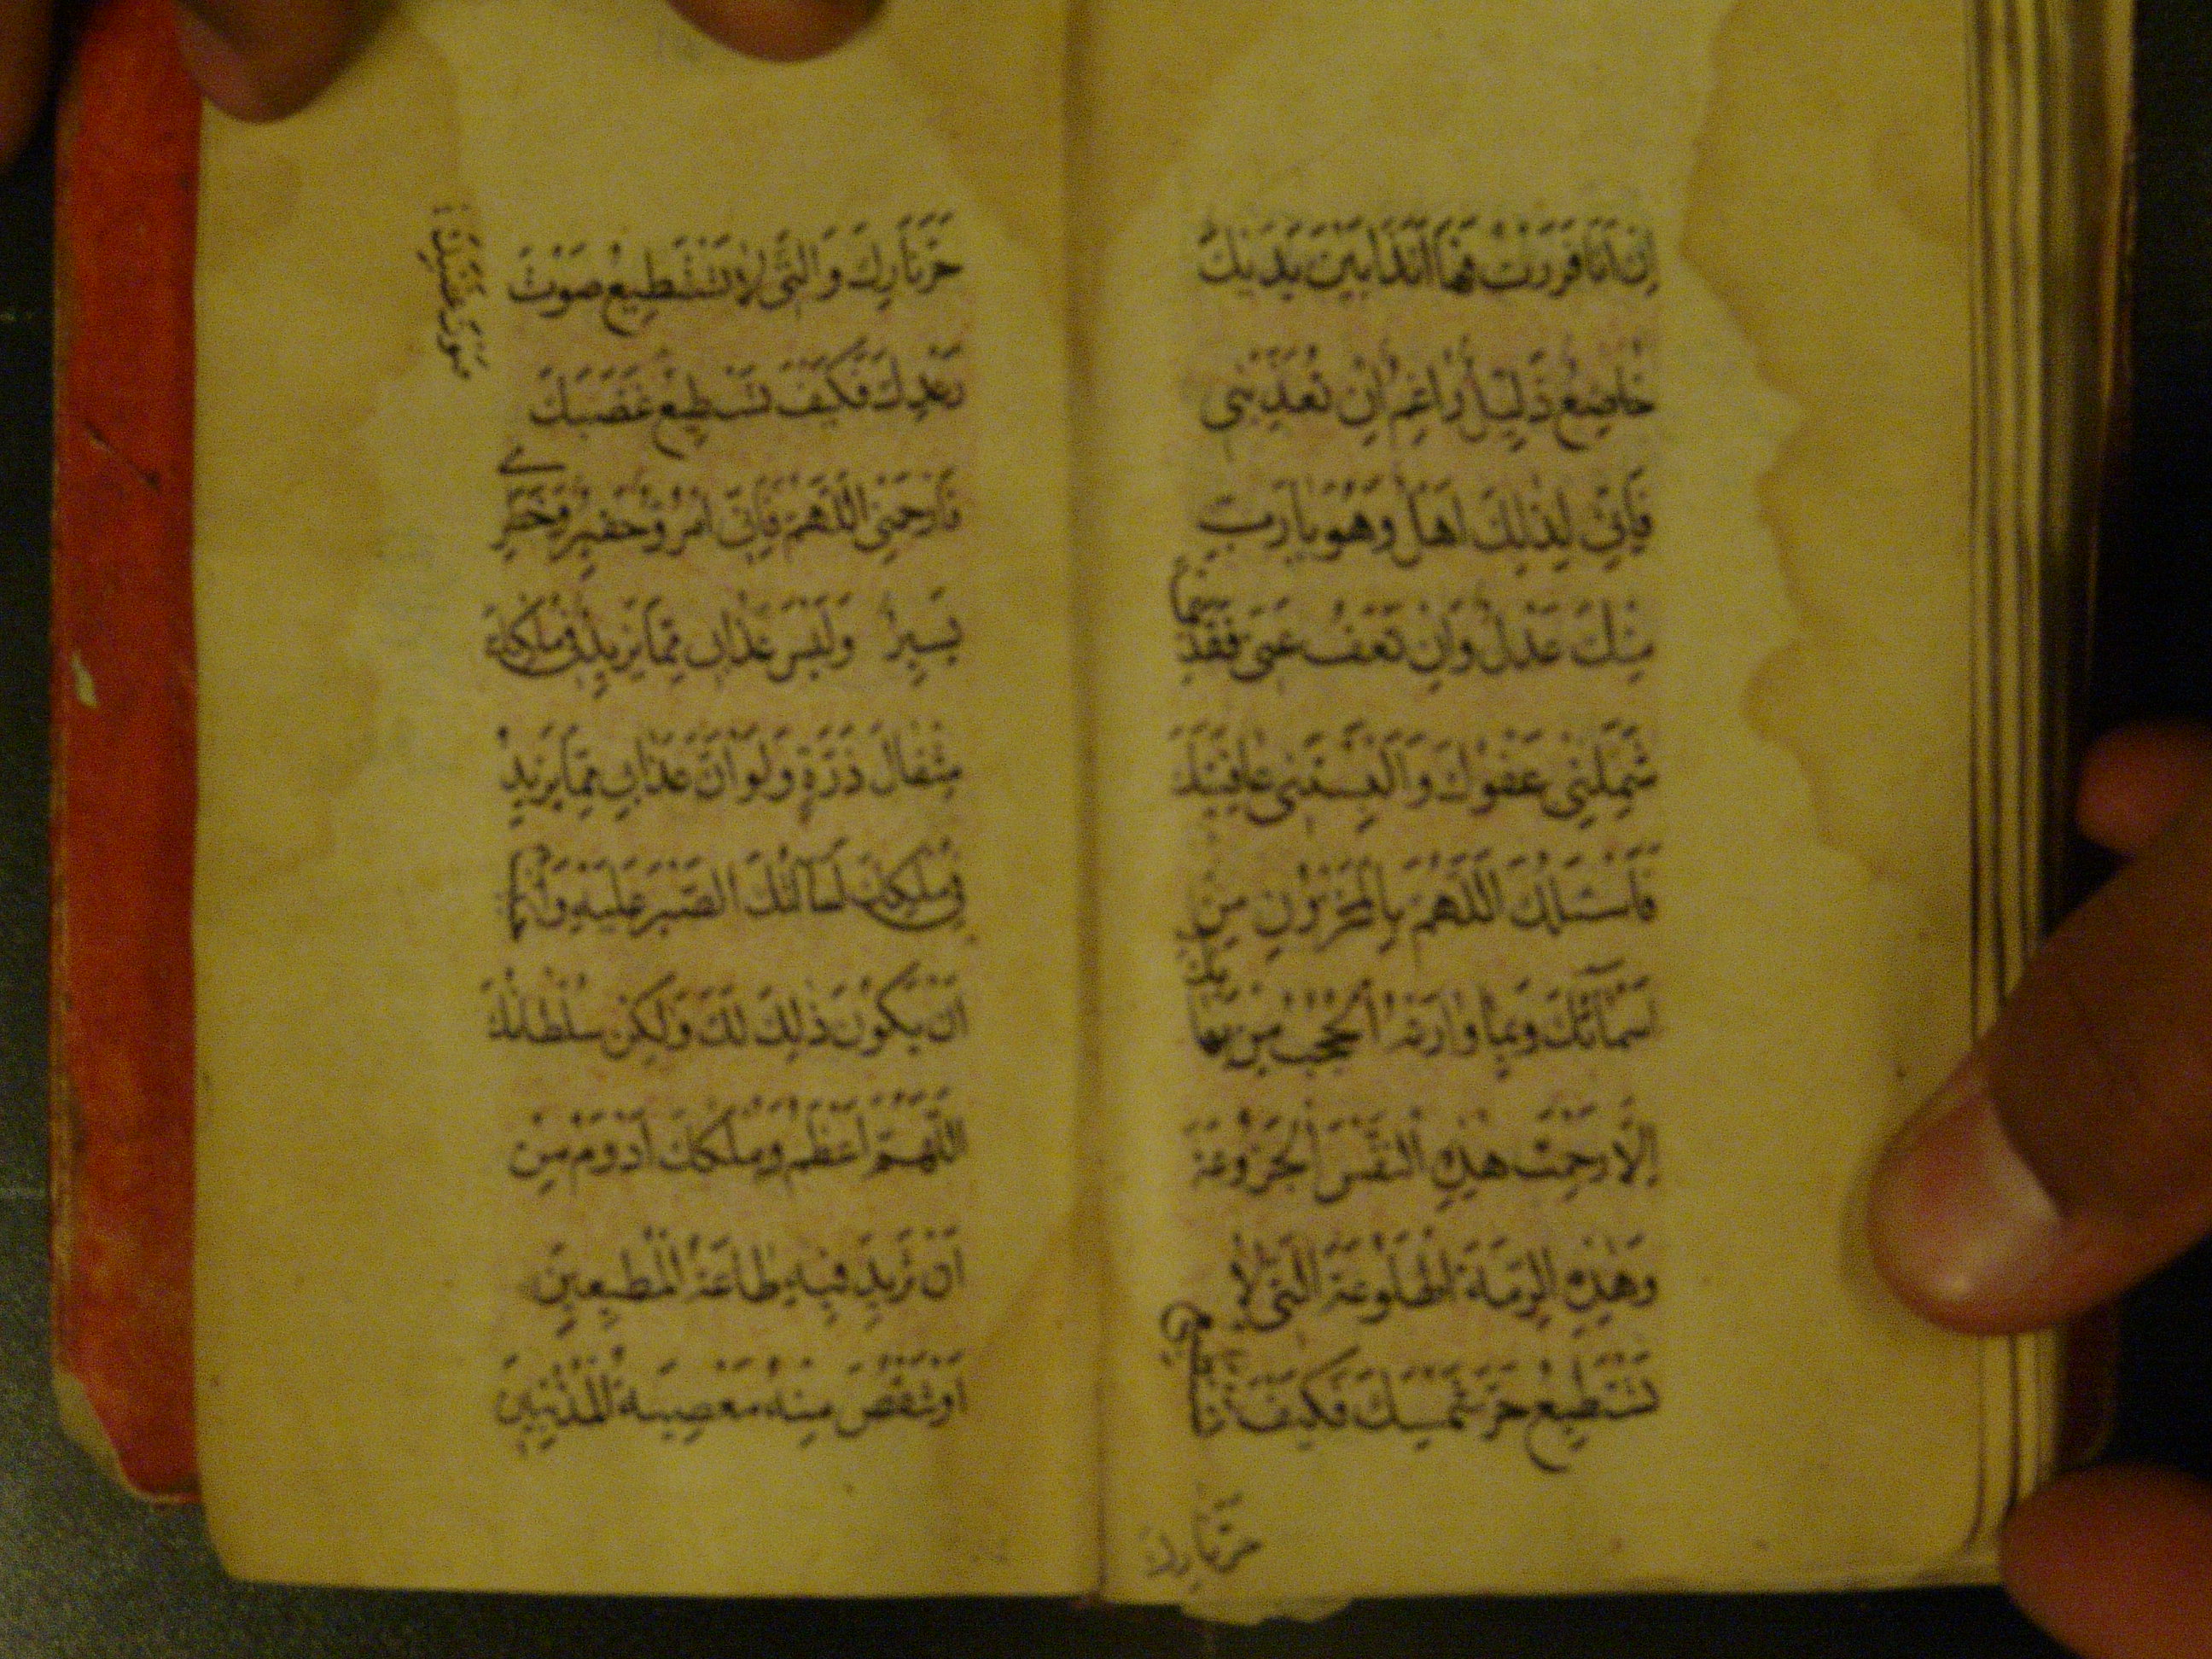 اِن اَنَا فَرَرْتُ فَهَا اَنَا ذَا بَيْنَ يَدَيْكَ
خَاضِعٌ ذَلِيلٌ رَاغِمٌ اِنْ تُعَذِّبْنِى
فَاِنِّى لِذٰلِكَ اَهْلٌ وَهُوَ يَا رَبِّ
مِنْكَ عَدْلٌ وَاِنْ تَعْفُ عَنِّى فَقَدِيمًا
شَمِلَنِى عَفْوُكَ وَاَلْبَسْتَنِى عَافِيَتَكَ
فَاَسْئَلُكَ اللّٰهُمَّ بِالْمَخْزُونِ مِنْ
اَسْمَآئِكَ وَبِمَا وَارَتْهُ الْحُجُبُ مِنْ بَهَائِكَ
اِلَّا رَحِمْتَ هٰذِهِ النَّفْسَ الْجَزُوعَةَ
وَهٰذِهِ الرِّمَّةَ الْهَلُوعَةَ الَّتِى لَا
تَسْتَطِيعُ حَرَّ شَمْسِكَ فَكَيْفَ تَسْتَطِيعُ
حَرَّ نَارِكَ
حَرَّ نَارِكَ وَالَّتِى لَا تَسْتَطِيعُ صَوْتَ
رَعْدِكَ فَكَيْفَ تَسْتَطِيعُ غَضَبَكَ
فَارْحَمْنِى اللّٰهُمَّ فَاِنِّى امْرُؤٌ حَقِيرٌ وَخَطَرِى
يَسِيرٌ وَلَيْسَ عَذَابِى مِمَّا يَزِيدُ فِى مُلْكِكَ
مِثْقَالَ ذَرَّةٍ وَلَوْ اَنَّ عَذَابِى مِمَّا يَزِيدُ
فِى مُلْكِكَ لَسَاَلْتُكَ الصَّبْرَ عَلَيْهِ وَ
اَنْ يَكُونَ ذٰلِكَ لَكَ وَلٰكِنْ سُلْطَانُكَ
اللّٰهُمَّ اَعْظَمُ وَمُلْكُكَ اَدْوَمُ مِنْ
اَنْ تَزِيدَ فِيهِ طَاعَةُ الْمُطِيعِينَ
اَوْ تَنْقُصَ مِنْهُ مَعْصِيَةُ الْمُذْنِبِينَ